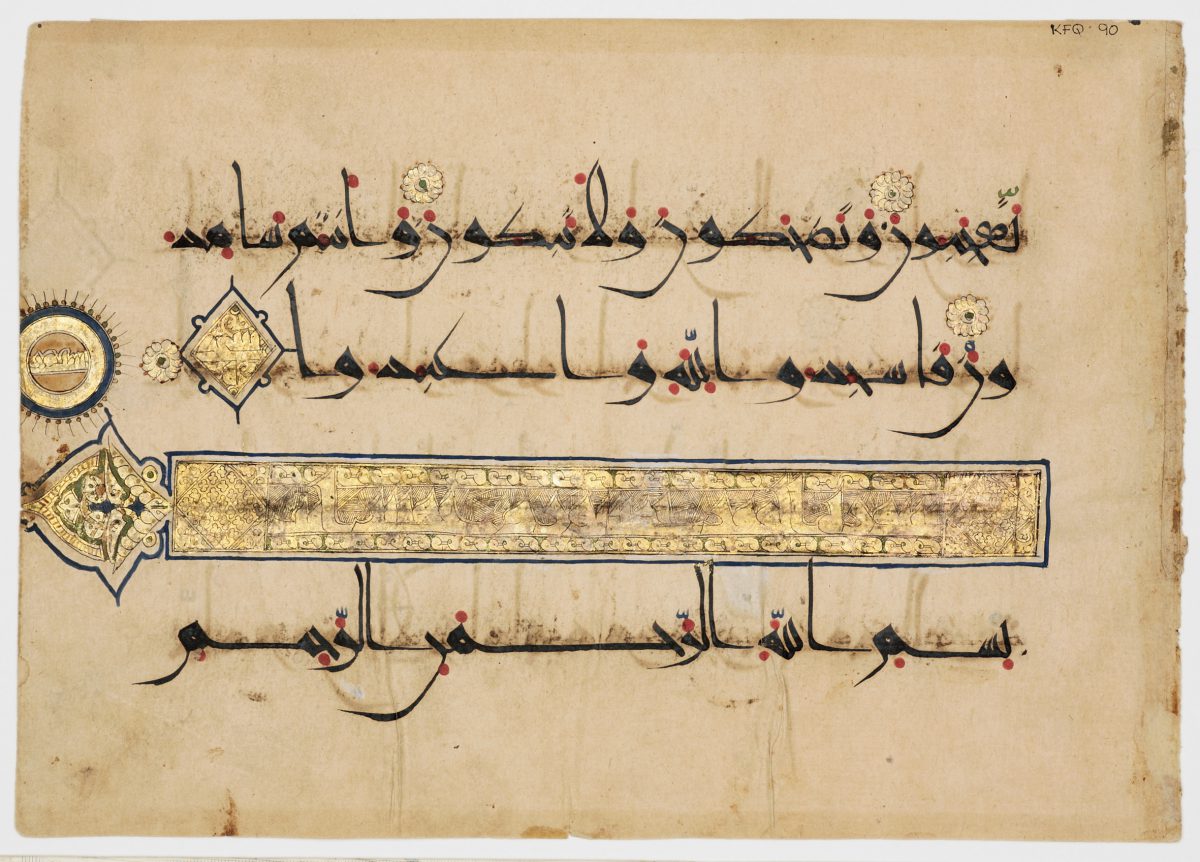 KFQ · 90
تعجبون وتضحكون ولا تبكون وانتم سامد
ون فاسجدوا لله واعبدوا
بسم الله الرحمن الرحيم